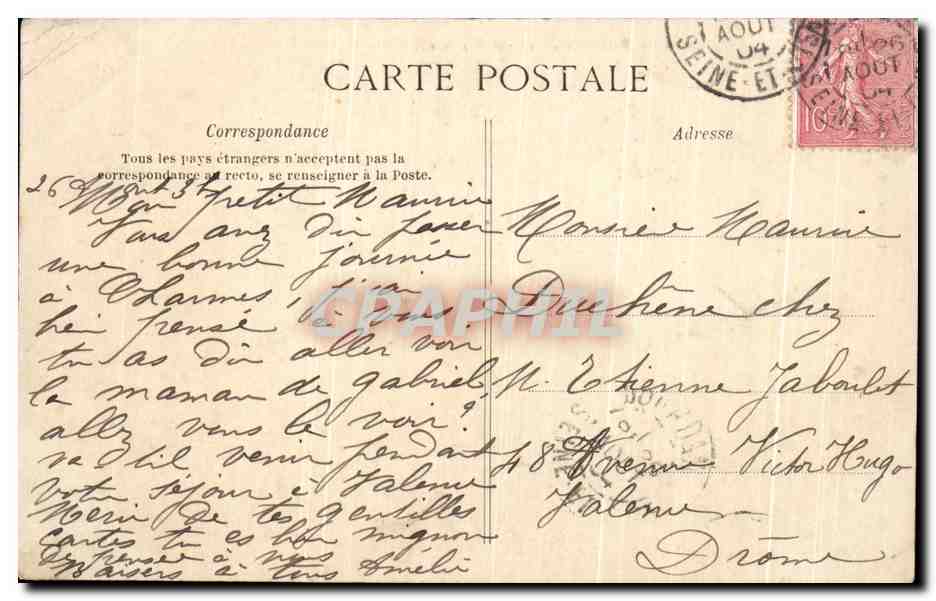 AOUT
04
SEINE-ET-
AOUT
04
10
CARTE POSTALE
Correspondance
Tous les pays étrangers n'acceptent pas la
correspondance au recto, se renseigner à la Poste.
26
Mon petit Maurice
Vous avez dû passer
une bonne journée
à Charmes, j'ai
bien pensé à vous
tu as dû aller voir
la maman de gabriel
allez vous le voir ?
va t-il venir pendant
votre séjour à Valence
Merci de tes gentilles
cartes tu es bien mignon
de penser à nous
Baisers à tous Amélie
Adresse
Monsieur Maurice
Duchêne chez
M. Etienne Jaboulet
48 Avenue Victor Hugo
Valence
Drôme
CPAPHIL